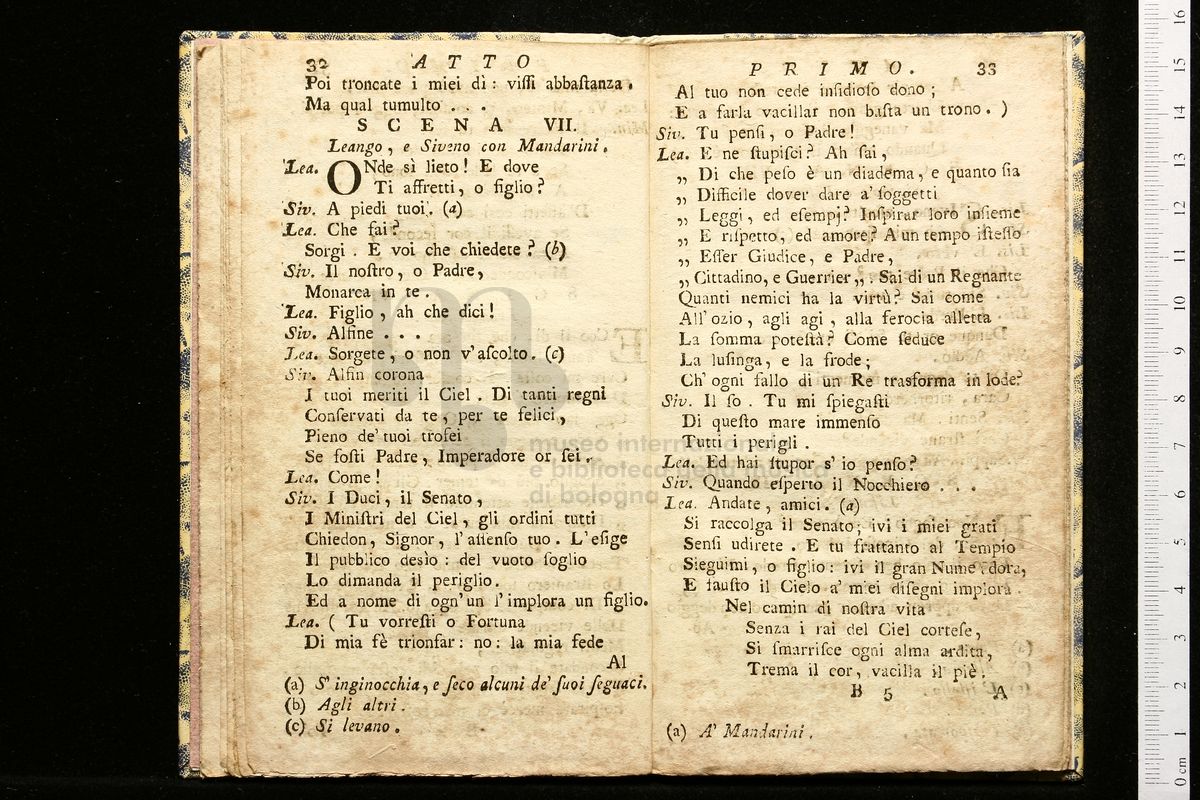 32 ATTO
Poi troncate i miei dì : vissi abbastanza.
Ma qual tumulto . . .
SCENA VII.
Leango, e Siveno con Mandarini.
Lea. ONde sì lieto! E dove
Ti affretti, o figlio?
Siv. A piedi tuoi. (a)
Lea. Che fai?
Sorgi . E voi che chiedete ? (b)
Siv. Il nostro, o Padre,
Monarca in te .
Lea. Figlio, ah che dici!
Siv. Alfine . . .
Lea. Sorgete, o non v'ascolto. (c)
Siv. Alfin corona
I tuoi meriti il Ciel . Di tanti regni
Conservati da te, per te felici,
Pieno de' tuoi trofei
Se fosti Padre, Imperadore or sei.
Lea. Come!
Siv. I Duci, il Senato,
I Ministri del Ciel, gli ordini tutti
Chiedon, Signor, l'assenso tuo. L'esige
Il pubblico desìo : del vuoto soglio
Lo dimanda il periglio.
Ed a nome di ogn'un l'implora un figlio.
Lea. ( Tu vorresti o Fortuna
Di mia fè trionfar: no: la mia fede
Al
(a) S' inginocchia, e seco alcuni de' suoi seguaci.
(b) Agli altri.
(c) Si levano.
PRIMO. 33
Al tuo non cede insidioso dono ;
E a farla vacillar non basta un trono. )
Siv. Tu pensi, o Padre!
Lea. E ne stupisci? Ah sai,
„ Di che peso è un diadema, e quanto sia
„ Difficile dover dare a' soggetti
„ Leggi, ed esempj? Inspirar loro insieme
„ E rispetto, ed amore? A un tempo istesso
„ Esser Giudice, e Padre,
„ Cittadino, e Guerrier „. Sai di un Regnante
Quanti nemici ha la virtù? Sai come
All'ozio, agli agi, alla ferocia alletta
La somma potestà? Come seduce
La lusinga, e la frode;
Ch' ogni fallo di un Re trasforma in lode?
Siv. Il so . Tu mi spiegasti
Di questo mare immenso
Tutti i perigli .
Lea. Ed hai stupor s' io penso?
Siv. Quando esperto il Nocchiero . . .
Lea. Andate, amici. (a)
Si raccolga il Senato; ivi i miei grati
Sensi udirete . E tu frattanto al Tempio
Sieguimi, o figlio: ivi il gran Nume adora,
E fausto il Cielo a' miei disegni implora.
Nel camin di nostra vita
Senza i rai del Ciel cortese,
Si smarrisce ogni alma ardita,
Trema il cor, vacilla il piè.
B 5 A
(a) A' Mandarini.
museo internazionale
e biblioteca della musica
di bologna
0 cm 1 2 3 4 5 6 7 8 9 10 11 12 13 14 15 16